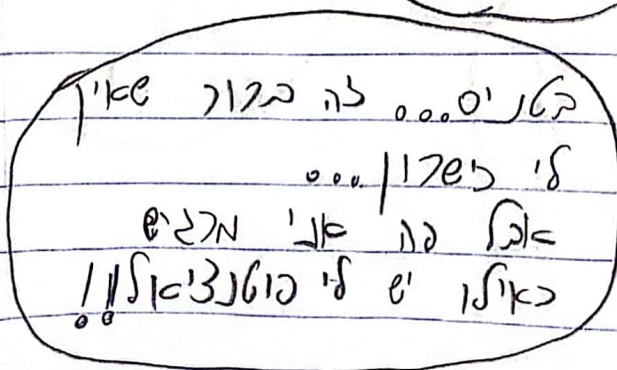 בטניס... זה ברור שאין
לי כישרון...
אבל פה אני מרגיש
כאילו יש לי פוטנציאל!!